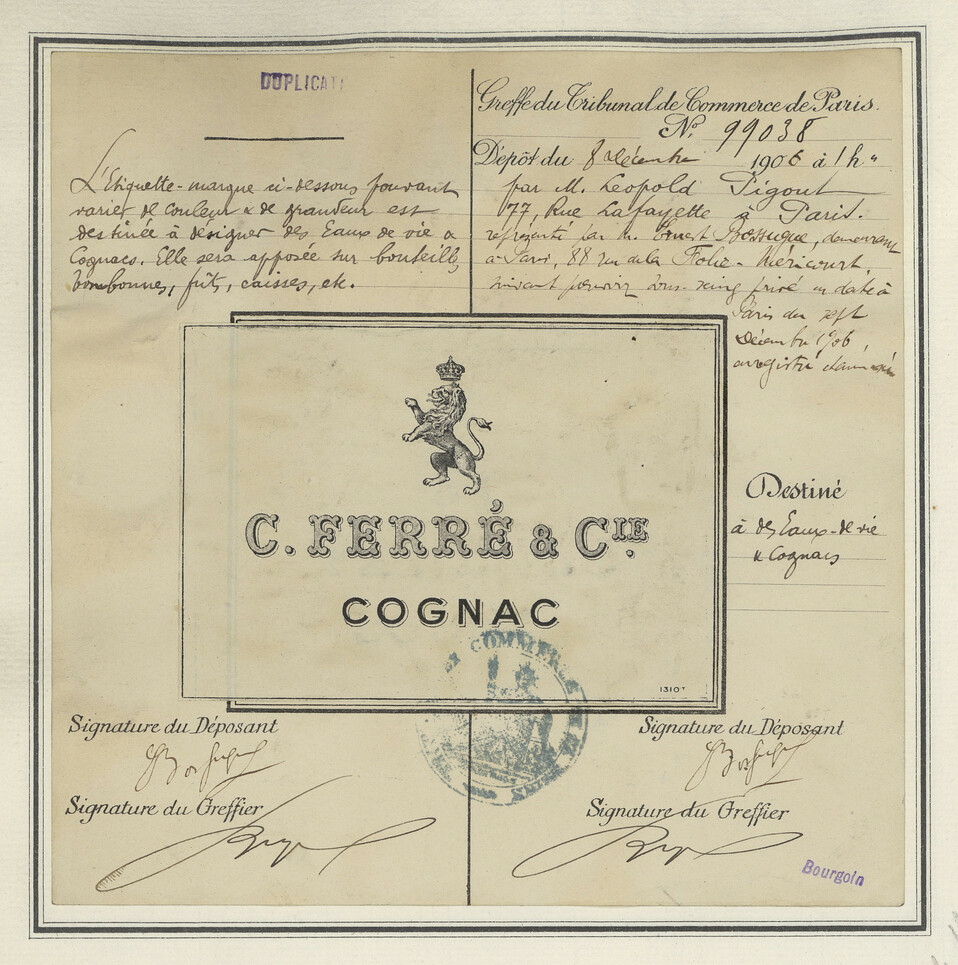 DUPLICATA
L'Etiquette-marque ci-dessous pouvant
varier de couleur & de grandeur est
destinée à désigner des Eaux de vie &
Cognacs. Elle sera apposée sur bouteilles,
bonbonnes, fûts, caisses, etc.
Greffe du Tribunal de Commerce de Paris.
No. 99038
Dépôt du 8 Décembre 1906 à 1h "
par M. Leopold Pigout
77, Rue Lafayette à Paris.
représenté par M. Ernest Bossuque, demeurant
à Paris, 88 rue de la Folie-Méricourt,
suivant pouvoir sous-seing privé en date à
Paris du sept
Décembre 1906,
enregistré
Destiné
à des Eaux-de-vie
& Cognacs
C. FERRÉ & CIE.
COGNAC
COMMERCE
Signature du Déposant
Signature du Greffier
Signature du Déposant
Signature du Greffier
Bourgoin